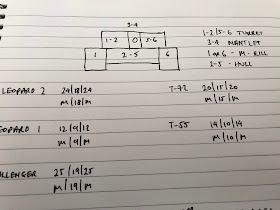 3-4
1-2 0 5-6
1 2-5 6
1-2/5-6 TURRET
3-4 MANTLET
1 or 6 - M-KILL
2-5 - HULL
LEOPARD 2 24/18/24
M/18/M
T-72 20/15/20
M/15/M
EOPARD 1 12/9/12
M/9/M
T-55 14/10/14
M/10/M
LLENGER 25/19/25
M/19/M